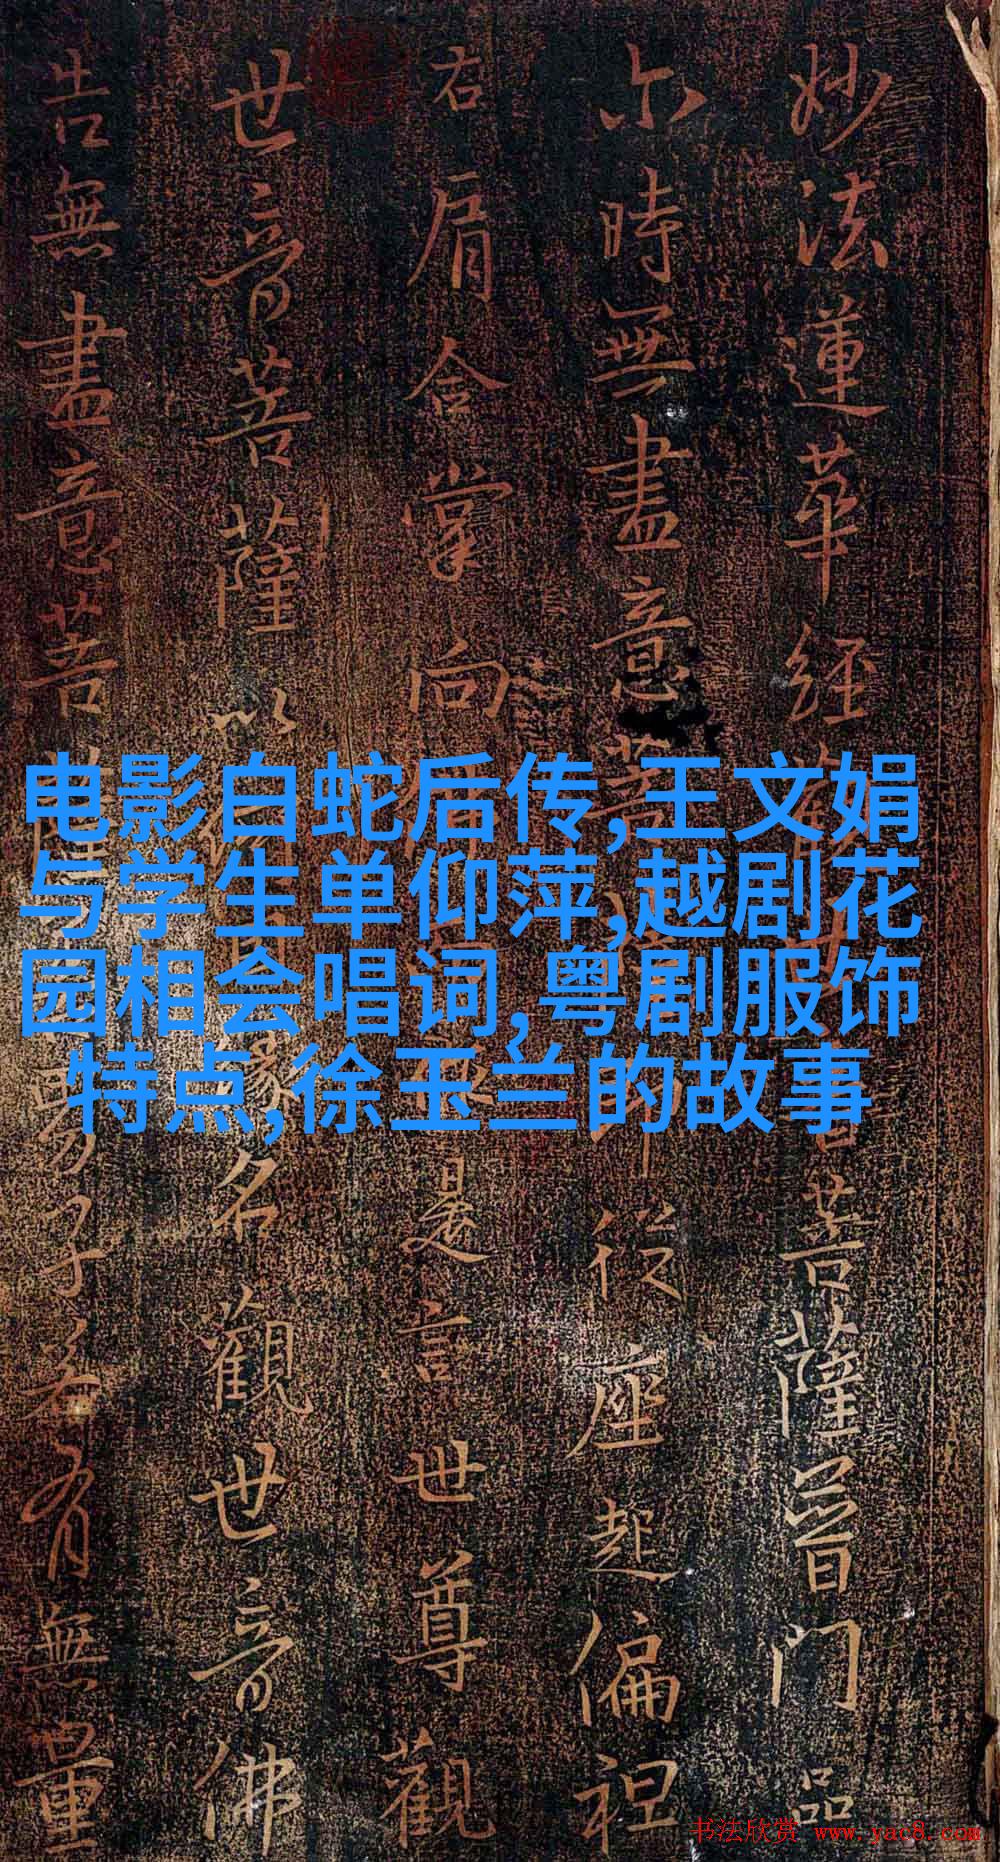 妙法蓮華經觀世音菩薩普門品
尒時無盡意菩薩即從座起偏袒
右肩合掌向佛而作是言世尊觀
世音菩薩以何因緣名觀世音佛
告無盡意菩薩善男子若有無量
电影白蛇后传,王文娟
与学生单仰萍,越剧花
园相会唱词,粤剧服饰
特点,徐玉兰的故事
书法欣赏 www.yac8.com